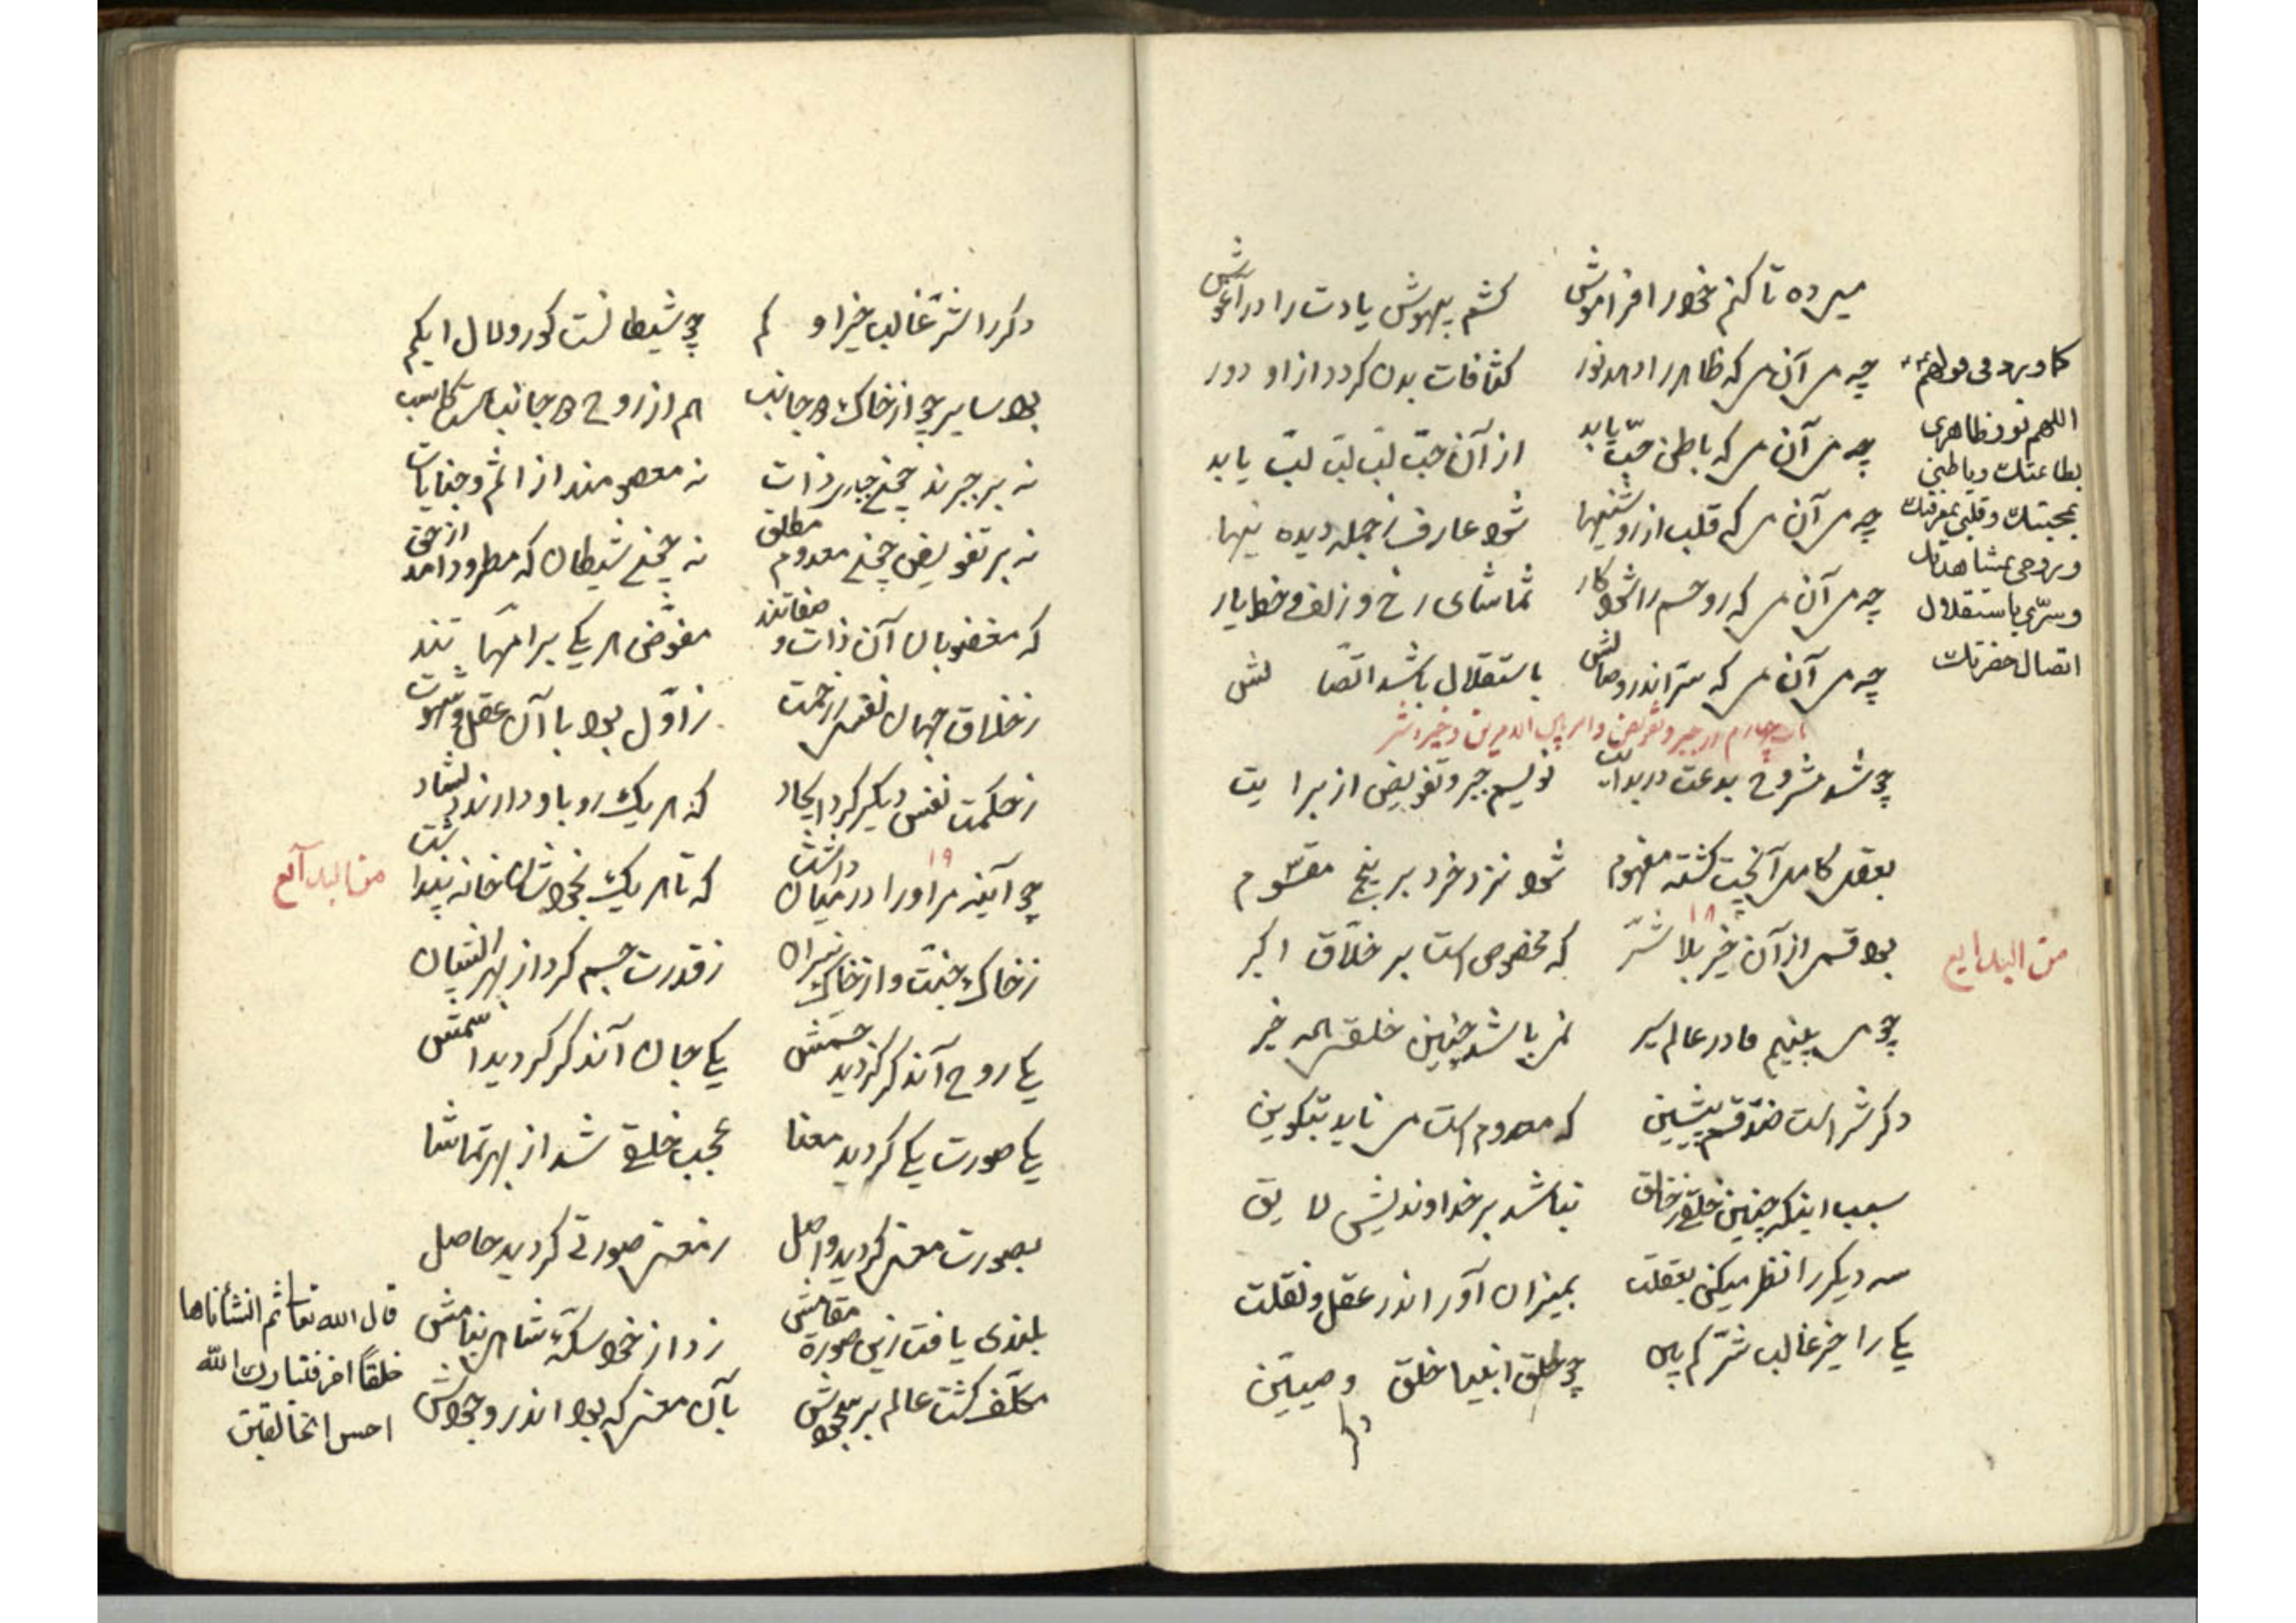 می ده تا کنم خود را فراموش کشم بیهوش یادت را در آغوش
چه می آن می که ظاهر را دهد نور کثافات بدن کردد از او دور
چه می آن می که باطن حبّ یابد از آن حبّ لبّ لبّ لبّ یابد
چه می آن می که قلب از روشنیها شود عارف ز جمله دیده نیها
چه می آن می که روحم را شود کار تماشای رخ و زلف و خط یار
چه می آن می که سرّ اندر وصالش باستقلال باشد اتصّالش
کما ورد فی
اللهم نور ظاهری
بطاعتک وباطنی
بمحبتک وقلبی بمعرفتک
وروحی بمشاهدتک
وسرّی باستقلال
اتصال حضرتک
باب چهارم در جبر و تفویض و امر بین الامرین و خیر و شر
چو شد مشروح بدعت در بدایت نویسم جبر و تفویض از برایت
بعقل کامل آنچت کشته مفهوم شود نزد خرد بر پنج مقسوم
۱۸
بود قسمی از آن خیر بلا شرّ که مخصوص است بر خلّاق اکبر
من البدایع
چو می بینیم ما در عالم سیر نمی باشد چنین خلقی همه خیر
دکر شر است ضدّ قسم پیشین که معدوم است می ناید بتکوین
سبب اینکه چنین خلقی ز خالق نباشد بر خداوندیش لایق
سه دیکر را نظر میکن بعقلت بمیزان آور اندر عقل و نقلت
یکی را خیر غالب شرّ کم بین چو خلق انبیا خلق وصیّین
دکر
دکر را شرّ غالب خیر او کم چو شیطانست کور و لال ابکم
بود سایر چو از خاک دو جانب هم از روح دو جانب هست کاسب
نه بر جبرند چون جباری ذات نه معصومند از اثم و جنایات
نه بر تفویض چون معدوم مطلق نه چون شیطان که مطرود آمد از حق
که مغضوبان آن ذات و صفاتند مفوّض هر یکی بر امّهاتند
ز خلاق جهان نفسی ز رحمت ز اوّل بود با آن عقل و شهوت
ز حکمت نفس دیکر کرد ایجاد که هر یک رو باو دارند دلشاد
۱۹
چو آینه مر او را در میان داشت که تا هر یک بخود شان خانه پنداشت
من البدایع
ز خاک جنّت و از خاک نیران ز قدرت جسم کرد از بهر انسان
یکی روح آن ذکر کردید جسمش یکی جان آن ذکر کردید اسمش
یکی صورت یکی کردید معنا عجب خلقی شد از بهر تماشا
بصورت معنی کردید واصل ز معنی صورتی کردید حاصل
بلندی یافت زین صورة مقامش زد از خود سکّه شاهی بنامش
مکلّف کشت عالم بر سجودش بآن معنی که بود اندر وجودش
قال الله تعا ثم انشأناها
خلقاً اخر فتبارک الله
احسن الخالقین